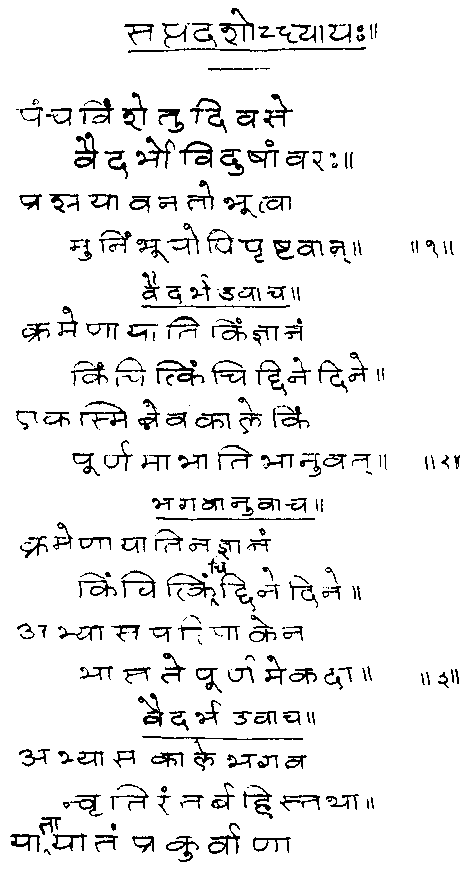 सप्तदशोऽध्यायः॥
पंचविंशेतु दिवसे
वैदर्भो विदुषांवरः॥
प्रश्रयावनतो भूत्वा
मुनिंभूयोपि पृष्टवान्॥ ॥१॥
वैदर्भ उवाच॥
क्रमेणायाति किंज्ञानं
किंचित्किंचिद्दिने दिने॥
एकस्मिन्नेव काले किं
पूर्णमाभाति भानुवत्॥ ॥२॥
भगवानुवाच॥
क्रमेणायाति न ज्ञानं
किंचित्किंचिद्दिने दिने॥
अभ्यास परिपाकेन
भासते पूर्णमेकदा॥ ॥३॥
वैदर्भ उवाच॥
अभ्यास काले भगव
न्वृतिरंतर्बहिस्तथा॥
यातायातं प्रकुर्वाणा